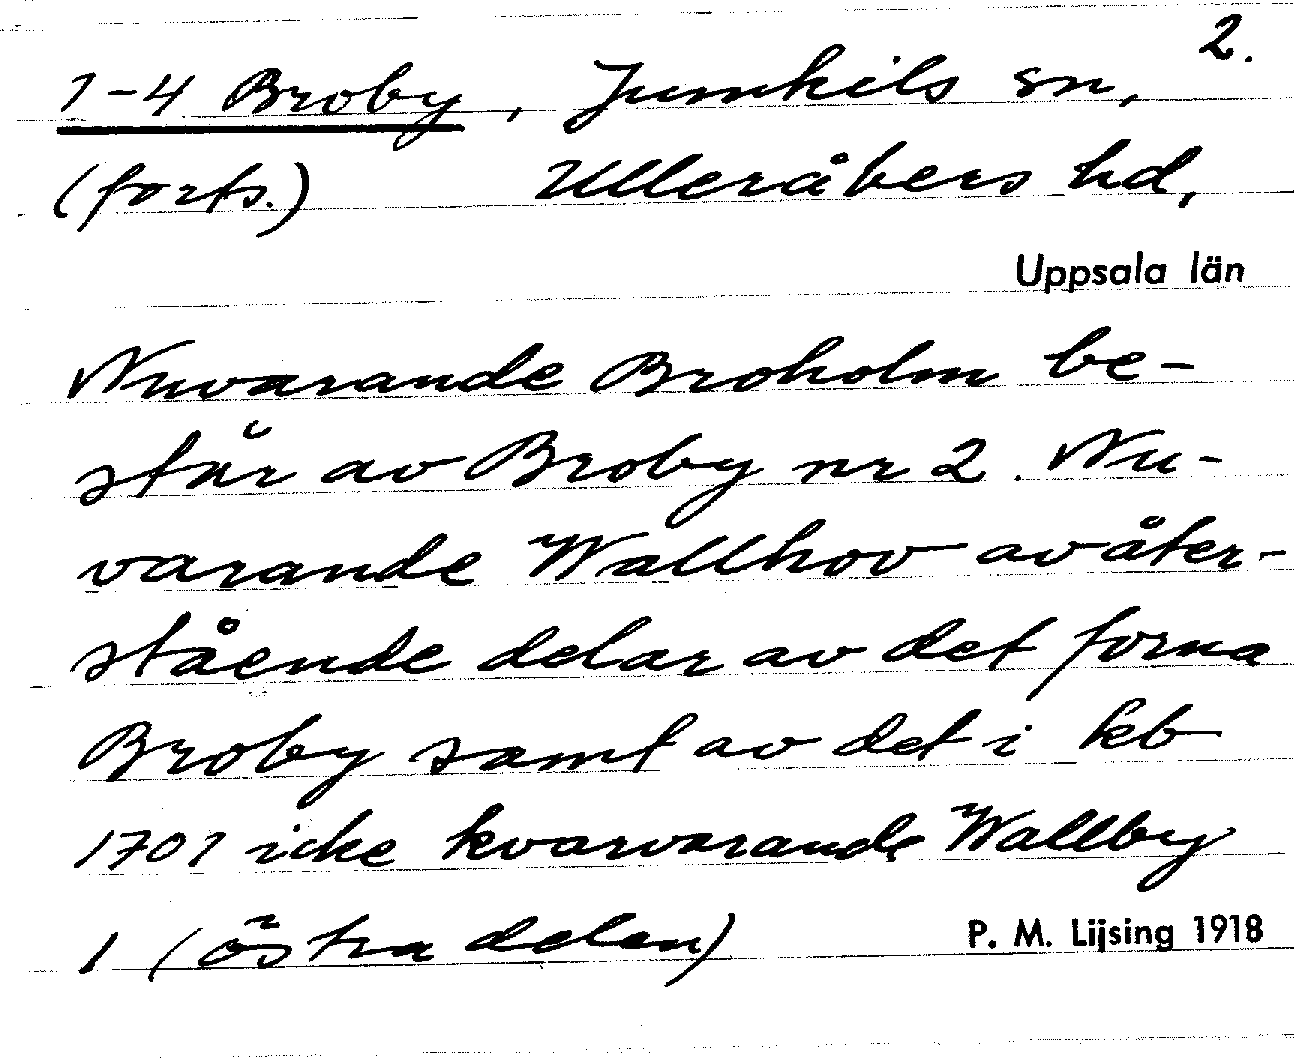 2.
1-4 Broby, Jumkils sn,
(forts.) Ulleråkers hd,
Uppsala län
Nuvarande Broholm be-
står av Broby nr 2. Nu-
varande Wallhov av åter-
stående delar av det forna
Broby samt av det i kb
1701 icke kvarvarande Wallby
1 (östra delen) P. M. Lijsing 1918